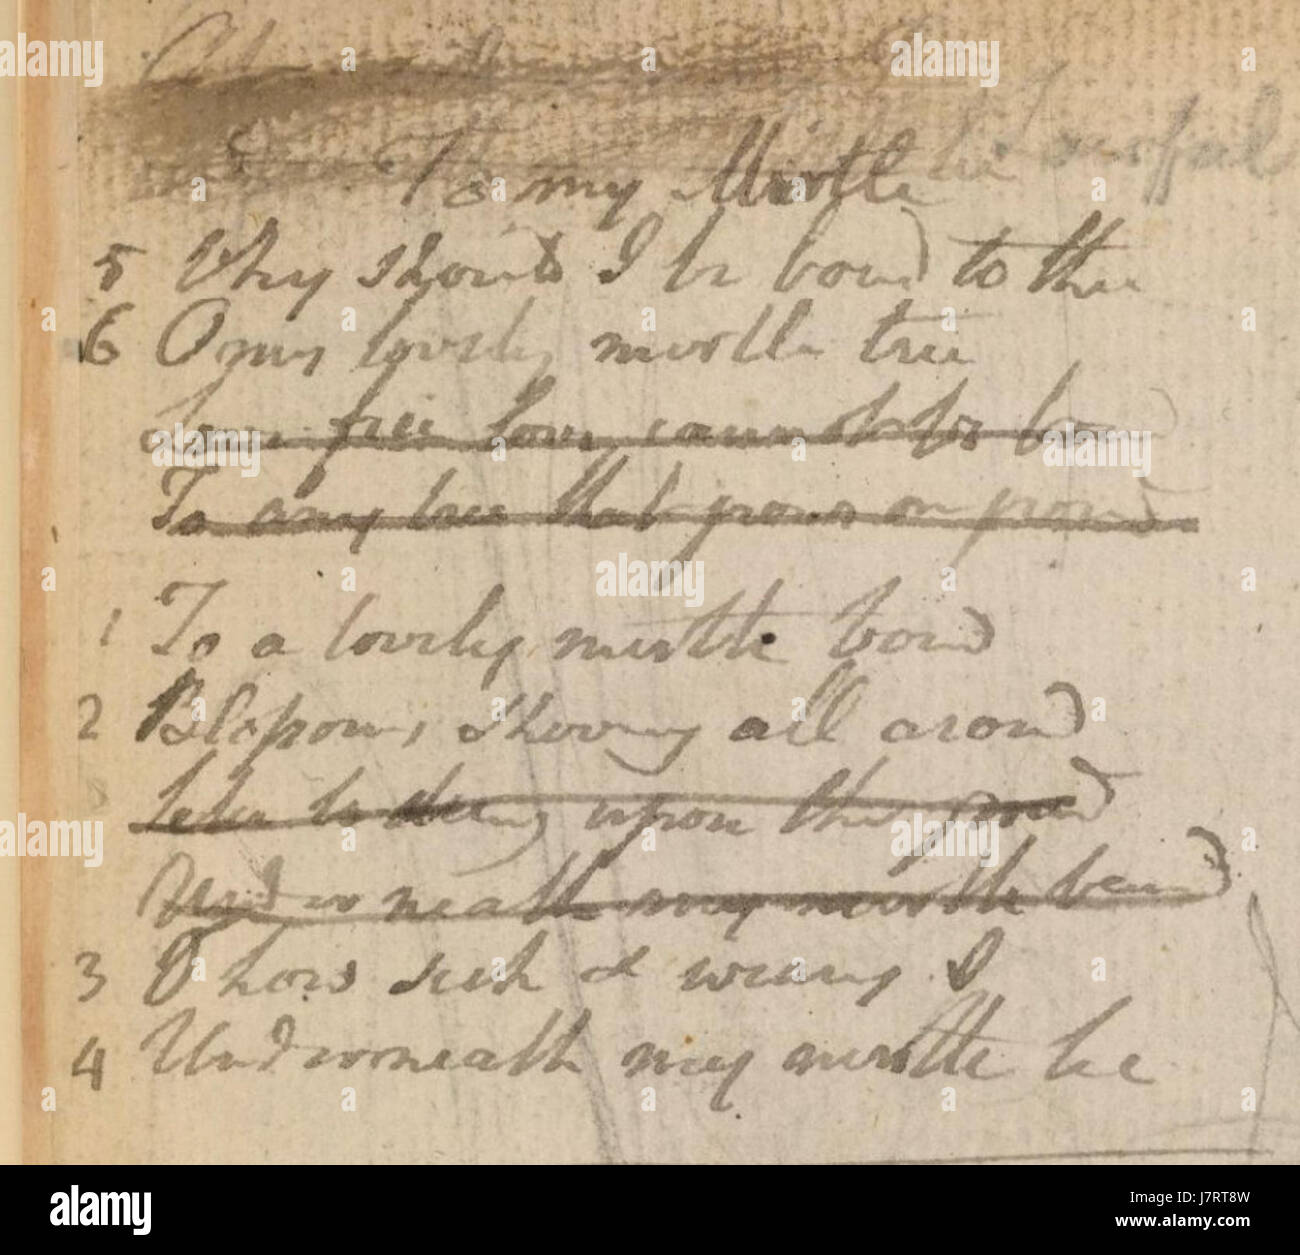 To my Mirtle
5 Why should I be bound to thee
6 O my lovely mirtle tree
Love free love cannot be bound
To any tree that grows on ground
1 To a lovely mirtle bound
2 Blossoms showring all around
Like to dung upon the ground
Underneath my mirtle bound
3 O how sick & weary I
4 Underneath my mirtle lie
alamy
Image ID: J7RT8W
www.alamy.com